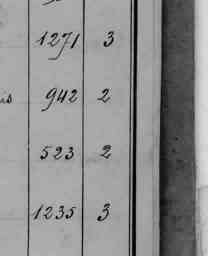 1271 3
942 2
523 2
1235 3